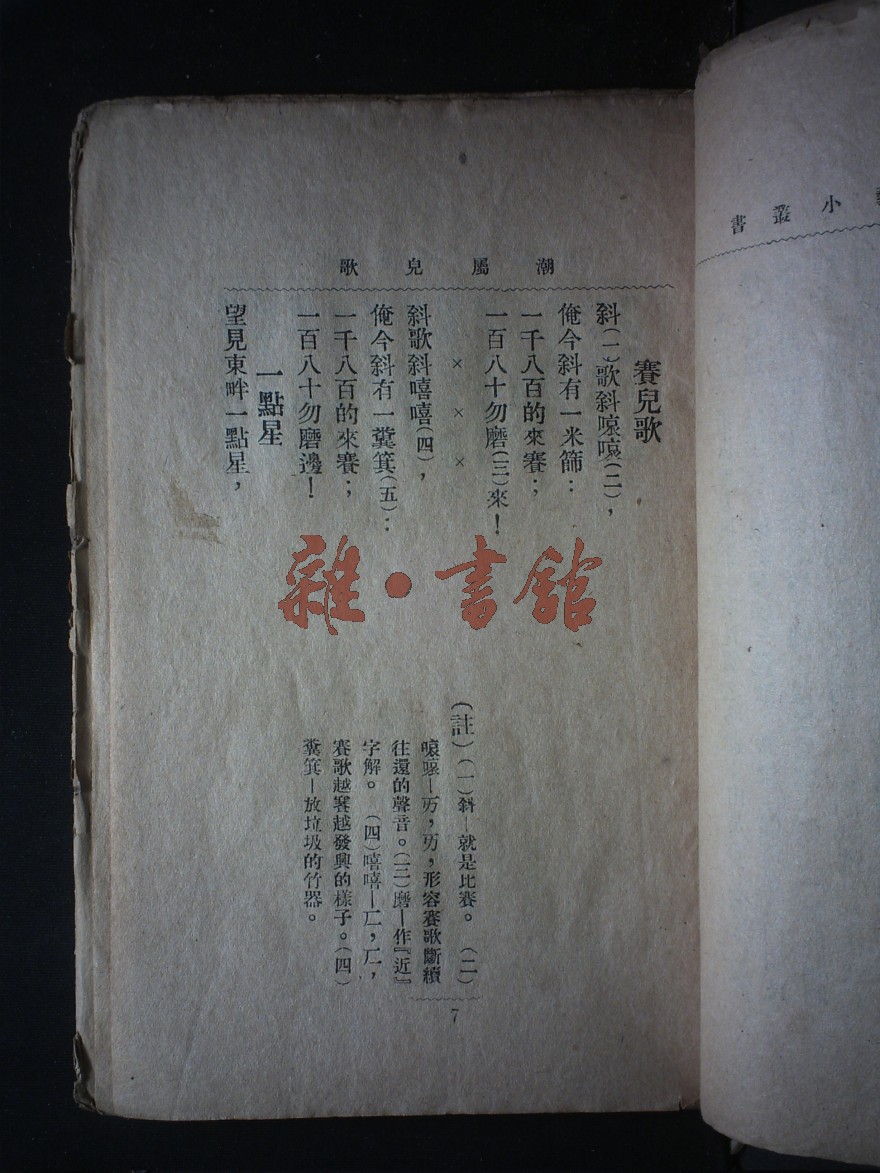 小叢書
潮屬兒歌
賽兒歌
斜(一)歌斜噯噯(二),
俺今斜有一米篩:
一千八百的來賽;
一百八十勿磨(三)來!
×××
斜歌斜嘻嘻(四),
俺今斜有一糞箕(五):
一千八百的來賽;
一百八十勿磨邊!
一點星
望見東畔一點星,
(註)(一)斜—就是比賽。 (二)
噯噯—ㄞ,ㄞ,形容賽歌斷續
往還的聲音。(三)磨—作『近』
字解。 (四)嘻嘻—ㄏ,ㄏ,
賽歌越賽越發興的樣子。(四)
糞箕—放垃圾的竹器。
7
雜·書館